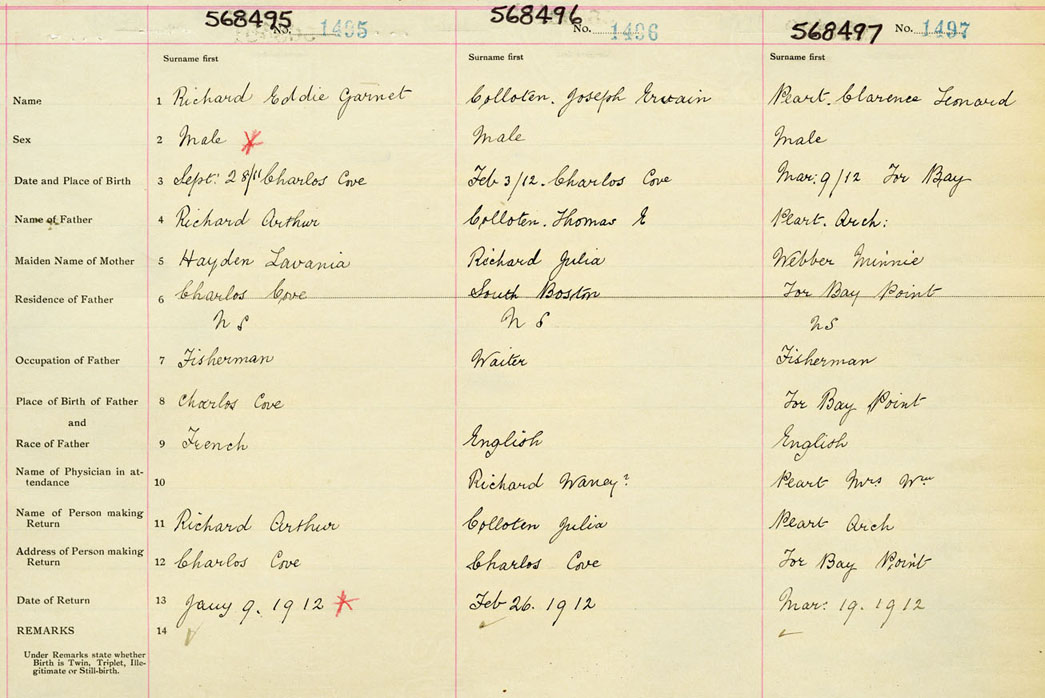 568495 No. 1495 568496 No. 1496 568497 No. 1497
Surname first Surname first Surname first
Name 1 Richard Eddie Garnet Colloten. Joseph Erwain Peart. Clarence Leonard
Sex 2 Male Male Male
Date and Place of Birth 3 Sept: 28/11 Charlos Cove Feb 3/12. Charlos Cove Mar: 9/12 Tor Bay
Name of Father 4 Richard Arthur Colloten. Thomas E Peart. Arch:
Maiden Name of Mother 5 Hayden Lavania Richard Julia Webber Minnie
Residence of Father 6 Charlos Cove South Boston Tor Bay Point
N S N S N S
Occupation of Father 7 Fisherman Waiter Fisherman
Place of Birth of Father 8 Charlos Cove Tor Bay Point
and
Race of Father 9 French English English
Name of Physician in at-
tendance 10 Richard Waney? Peart Mrs Wm
Name of Person making
Return 11 Richard Arthur Colloten Julia Peart Arch
Address of Person making
Return 12 Charlos Cove Charlos Cove Tor Bay Point
Date of Return 13 Jany 9. 1912 Feb 26. 1912 Mar: 19. 1912
REMARKS 14
Under Remarks state whether
Birth is Twin, Triplet, Ille-
gitimate or Still-birth.